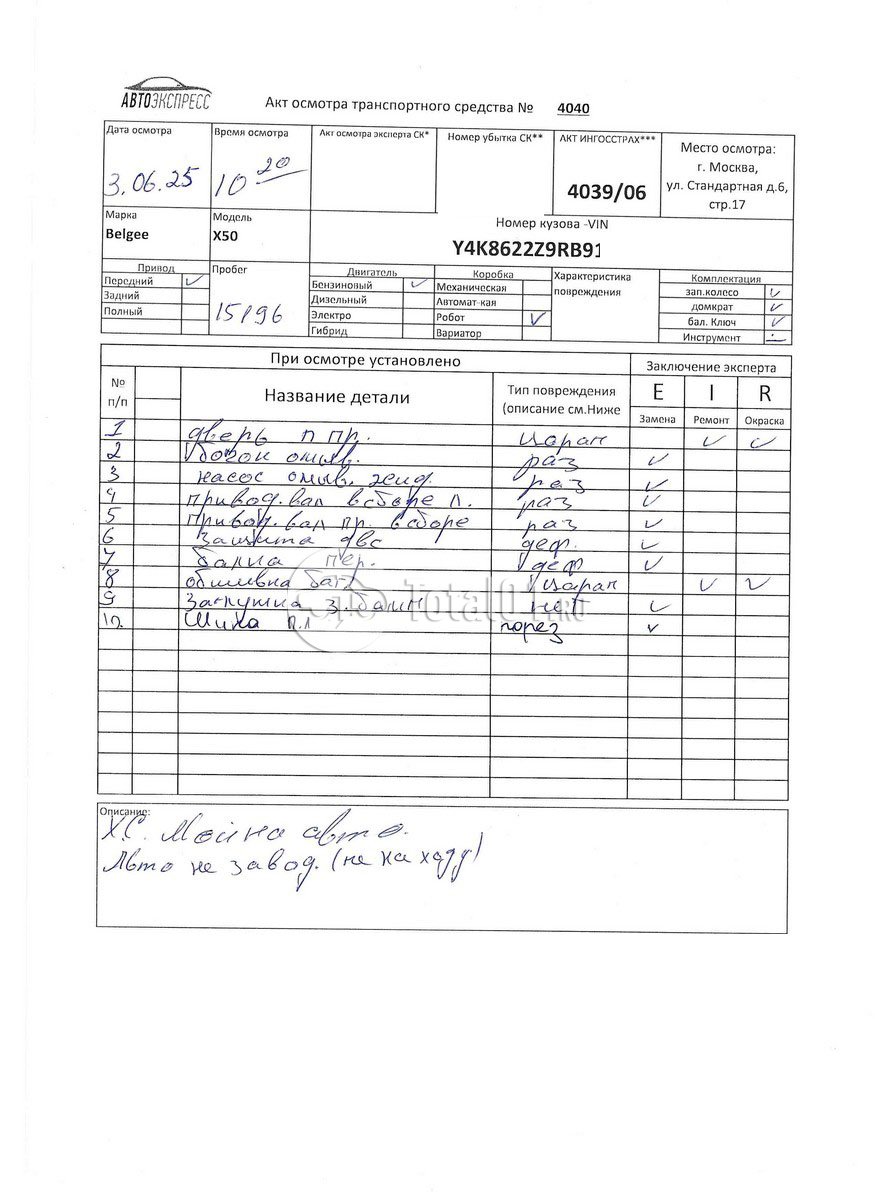 АВТОЭКСПРЕСС
Акт осмотра транспортного средства № 4040
Дата осмотра Время осмотра Акт осмотра эксперта СК* Номер убытка СК** АКТ ИНГОССТРАХ*** Место осмотра:
г. Москва,
3.06.25 10 20 4039/06 ул. Стандартная д.6,
стр.17
Марка Модель Номер кузова -VIN
Belgee X50 Y4K8622Z9RB91
Привод Пробег Двигатель Коробка Характеристика Комплектация
Передний ✓ Бензиновый ✓ Механическая повреждения зап.колесо ✓
Задний Дизельный Автомат-кая домкрат ✓
Полный 15196 Электро Робот ✓ бал. Ключ ✓
Гибрид Вариатор Инструмент –
При осмотре установлено Заключение эксперта
№ Название детали Тип повреждения E I R
п/п (описание см.Ниже Замена Ремонт Окраска
1 дверь п пр. царап ✓ ✓
2 бочок омыв. раз ✓
3 насос омыв. жид. раз ✓
4 привод. вал в сборе л. раз ✓
5 привод. вал пр. в сборе раз ✓
6 защита двс деф. ✓
7 балка пер. деф ✓
8 обшивка баг царап ✓ ✓
9 Заглушка з. бамп нет ✓
10 Шина п.л порез ✓
TotalO1.RU
Описание:
Х.С. Мойка авто.
Авто не завод. (не на ходу)